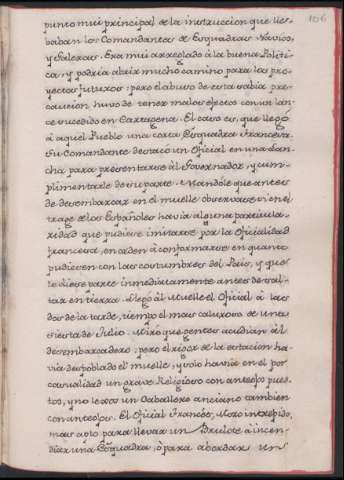 106
punto mui principal de la instruccion que lle-
vaban los Comandantes de Esquadras, Navios,
y Galeras. Era mui arreglado à la buena Politi-
ca, y podria abrir mucho camino para los pro-
yectos futuros: pero el abuso de esta sabia pre-
caucion huvo de tener malos efectos con un lan-
ce sucedido en Cartagena. El caso es, que llegó
à aquel Pueblo una corta Esquadra Francesa.
Su Comandante destacó un Oficial en una lan-
cha para presentarse àl Governador, y cum-
plimentarle de su parte. Mandóle que antes
de desembarcar en el muelle observase si en el
trage de los Españoles havia alguna particula-
ridad que pudiese imitarse por la Oficialidad
francesa, en orden à conformarse en quanto
pudiesen con las costumbres del Pais, y que
le diese parte inmediatamente antes de sal-
tar en tierra. Llegó àl Muelle el Oficial à las
dos de la tarde, tiempo el mas caluroso de una
siesta de Julio. Miró que gentes acudian àl
desembarcadero: pero el rigor de la estacion ha-
via despoblado el muelle, y solo havia en el por
casualidad un grave Religioso con anteojos pues-
tos, y no lexos un Caballero anciano tambien
con anteojos. El Oficial Francés, mozo intrepido,
mas apto para llevar un Brulote à incen-
diar una Esquadra, ò para abordar un